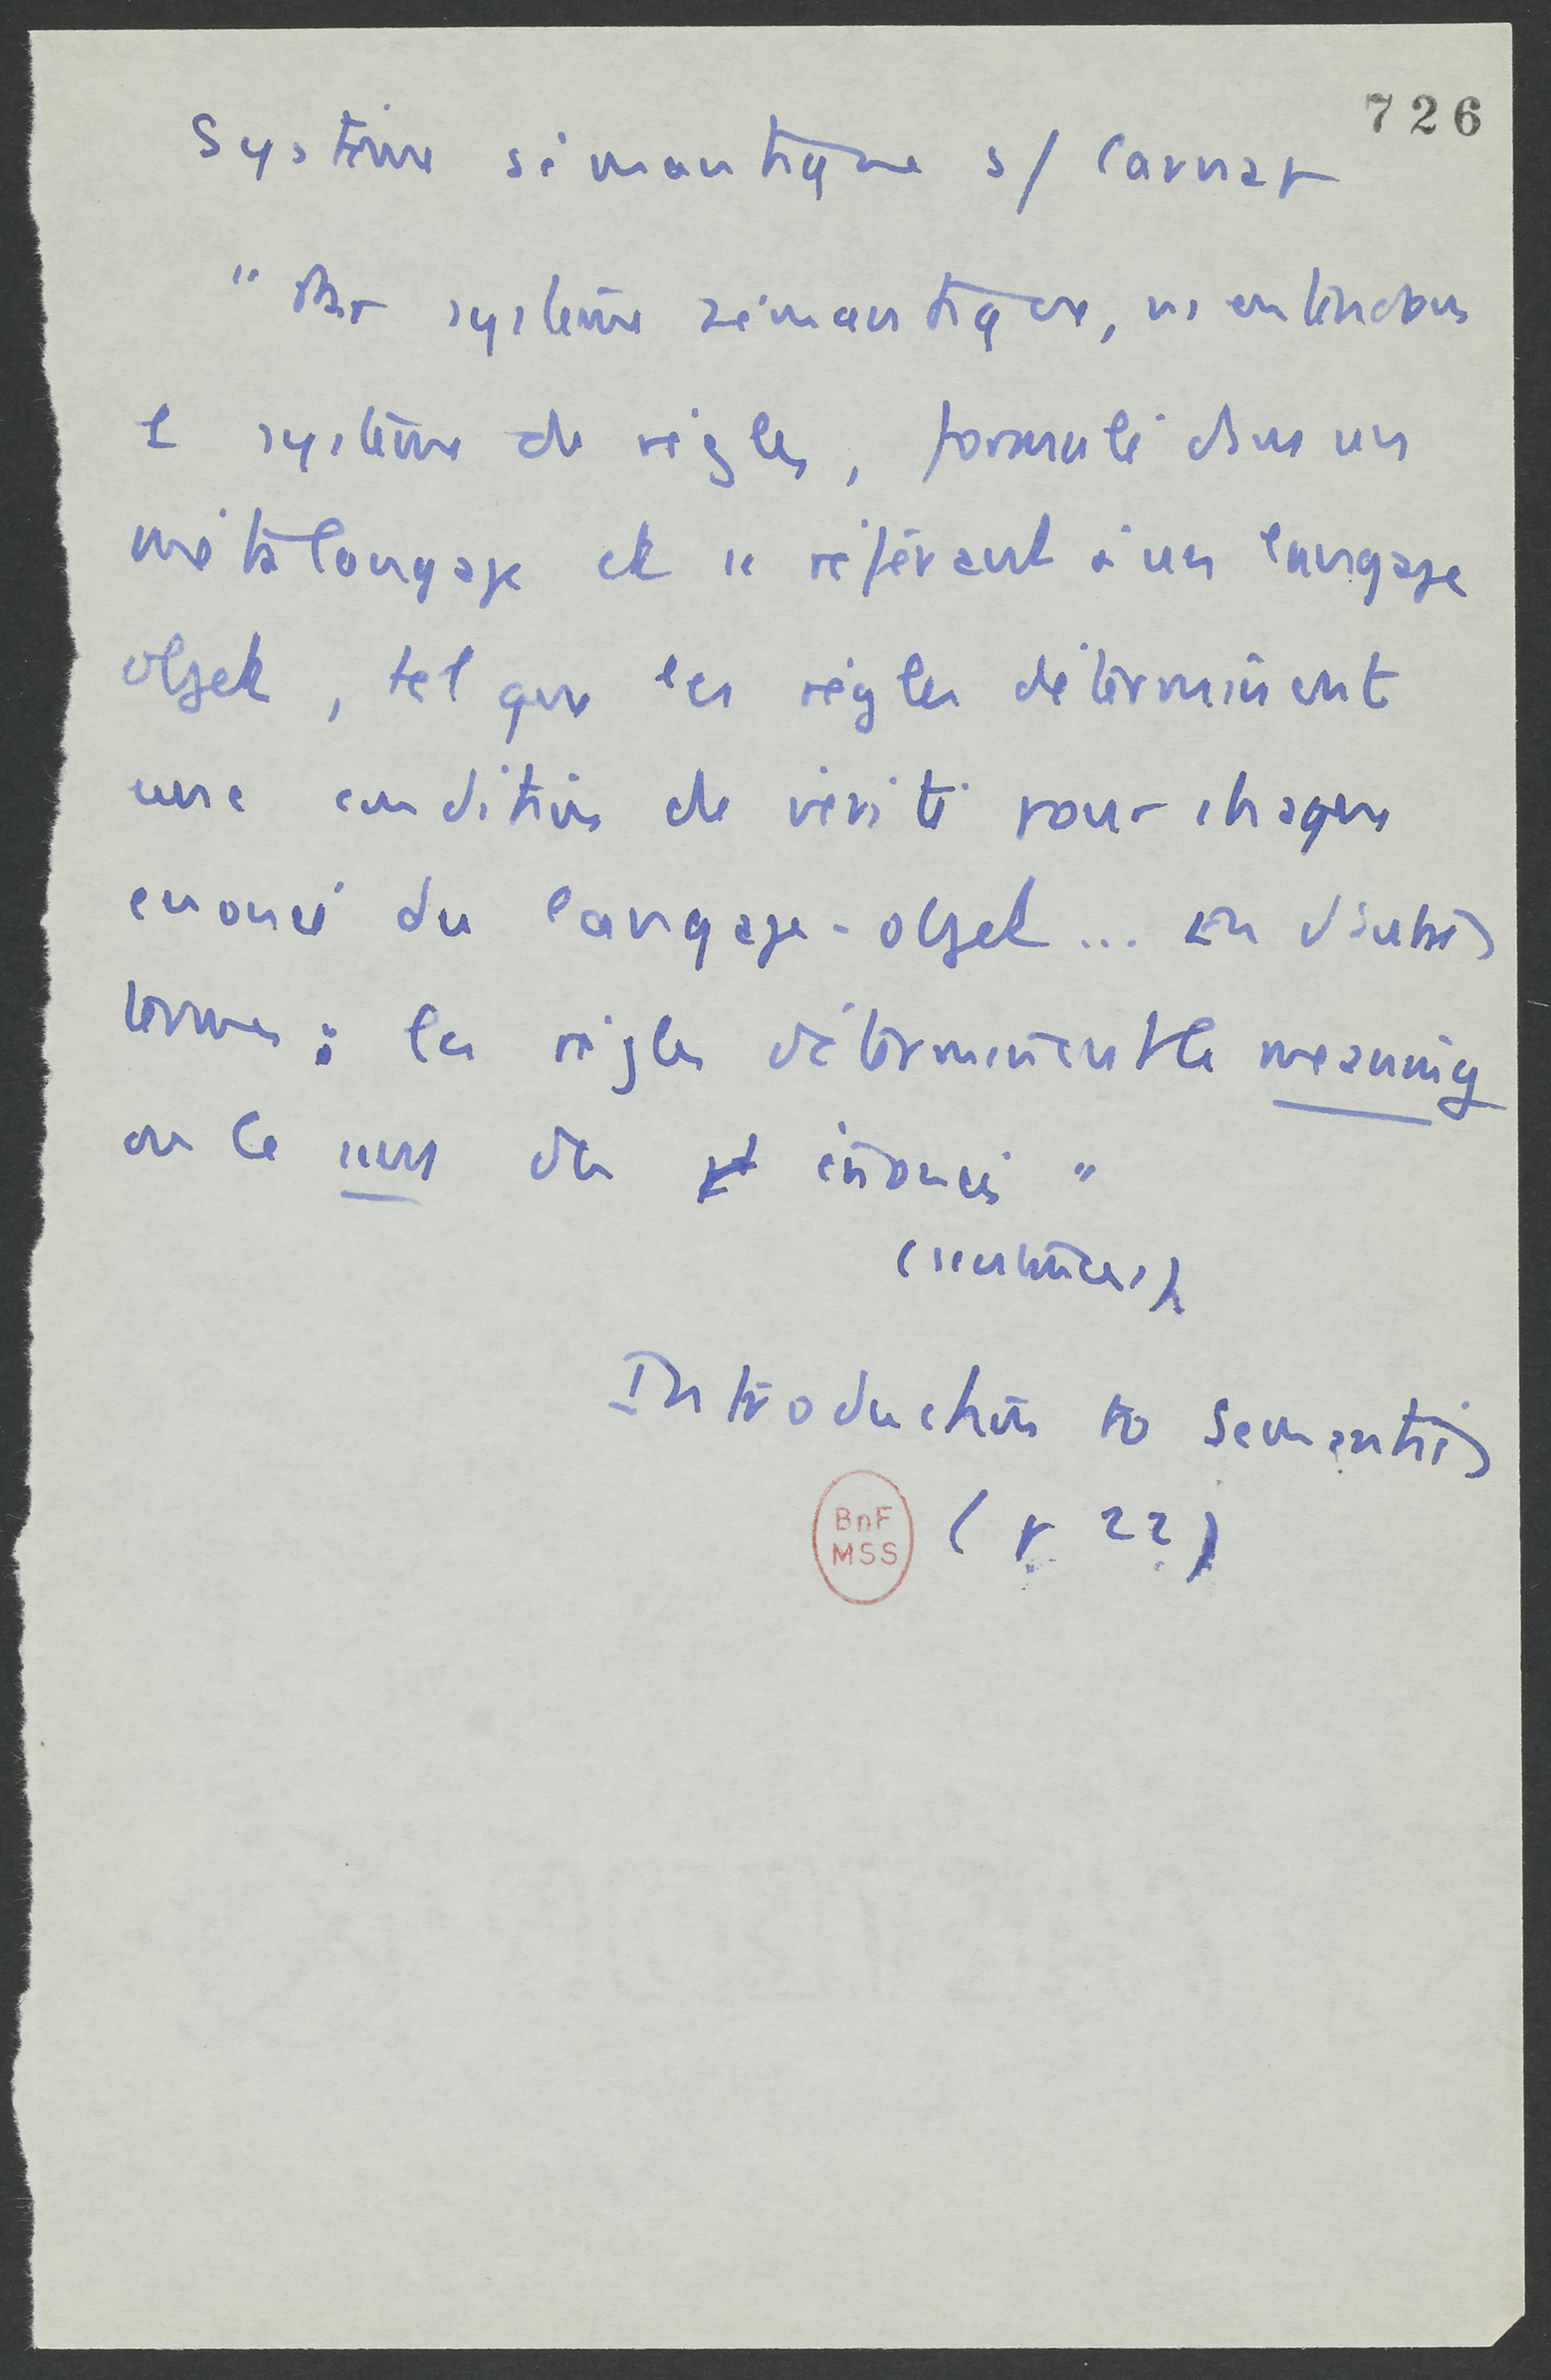 726
Système sémantique s/ Carnap
"Par système sémantique, ns entendons
1 système de règles, formulé dans un
métalangage et se référant à un langage
objet, tel que les règles déterminent
une condition de vérité pour chaque
enoncé du langage-objet... En d'autres
termes : les règles déterminent le meaning
ou le sens des énoncés"
(sentences)
Introduction to Semantics
BnF
MSS
(p 22)